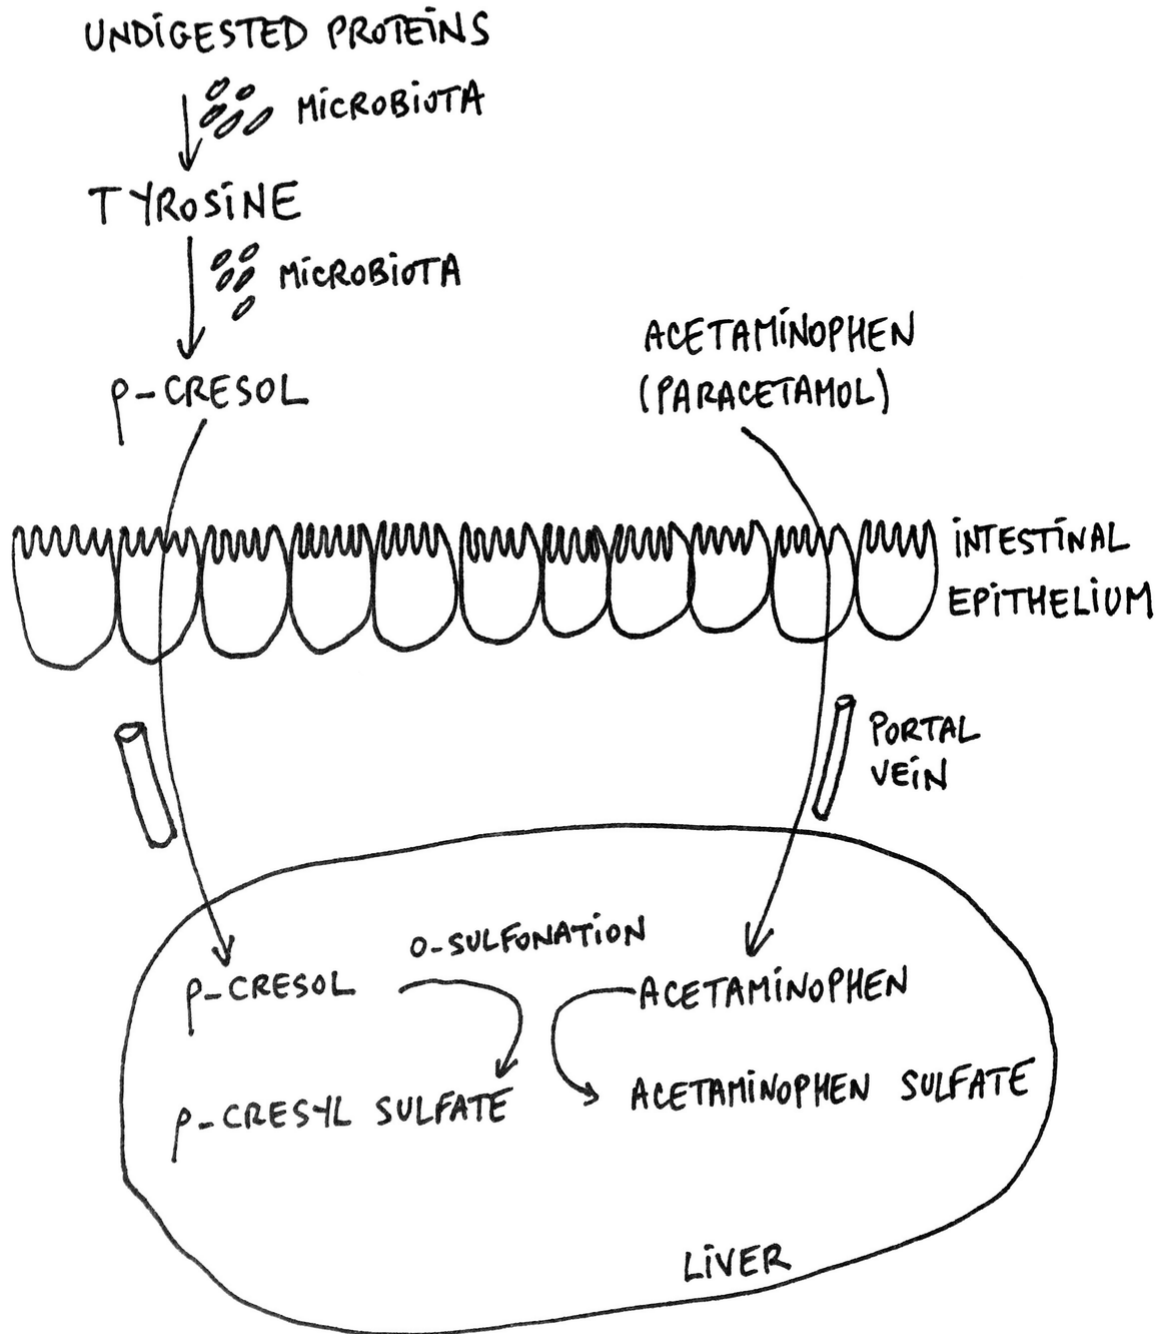 UNDIGESTED PROTEINS
MICROBIOTA
TYROSINE
MICROBIOTA
p-CRESOL
ACETAMINOPHEN
(PARACETAMOL)
INTESTINAL
EPITHELIUM
PORTAL
VEIN
O-SULFONATION
p-CRESOL
ACETAMINOPHEN
p-CRESYL SULFATE
ACETAMINOPHEN SULFATE
LIVER